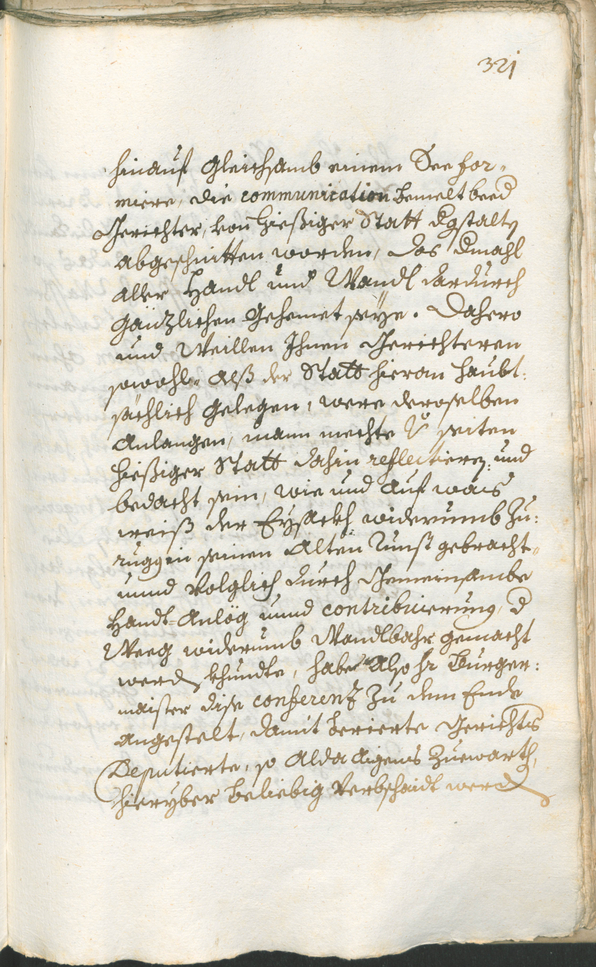 321
hinauf gleichsamb einem See for-
miere, die communication bemelt beed
Gerichter, von hießiger Statt dgstalt
abgeschnitten worden, das dmahl
aller Handl und Wandl dardurch
gänzlichen gehemet seye. Dahero
und Weillen Ihnen Gerichteren
sowohl, alß der Statt hieran haubt-
sächlich gelegen, were deroselben
Anlangen, mann mechte seiten
hießiger Statt dahin reflectieren, und
bedacht sein, wie und auf was
weiß der Eysackh widerumb zu-
ruggen seinen alten Runst gebracht,
unnd volglich durch Gemeinsambe
Handt-Anlög unnd contribuierung d
Weeg widerumb Wandlbahr gemacht
werd khundte, habe also hr Burger-
maister dise conferenz zu dem Ende
angestelt, damit berierte Gerichts
Deputierte, so alda aigens zuewarth,
hieryber beliebig verbschaidt werd